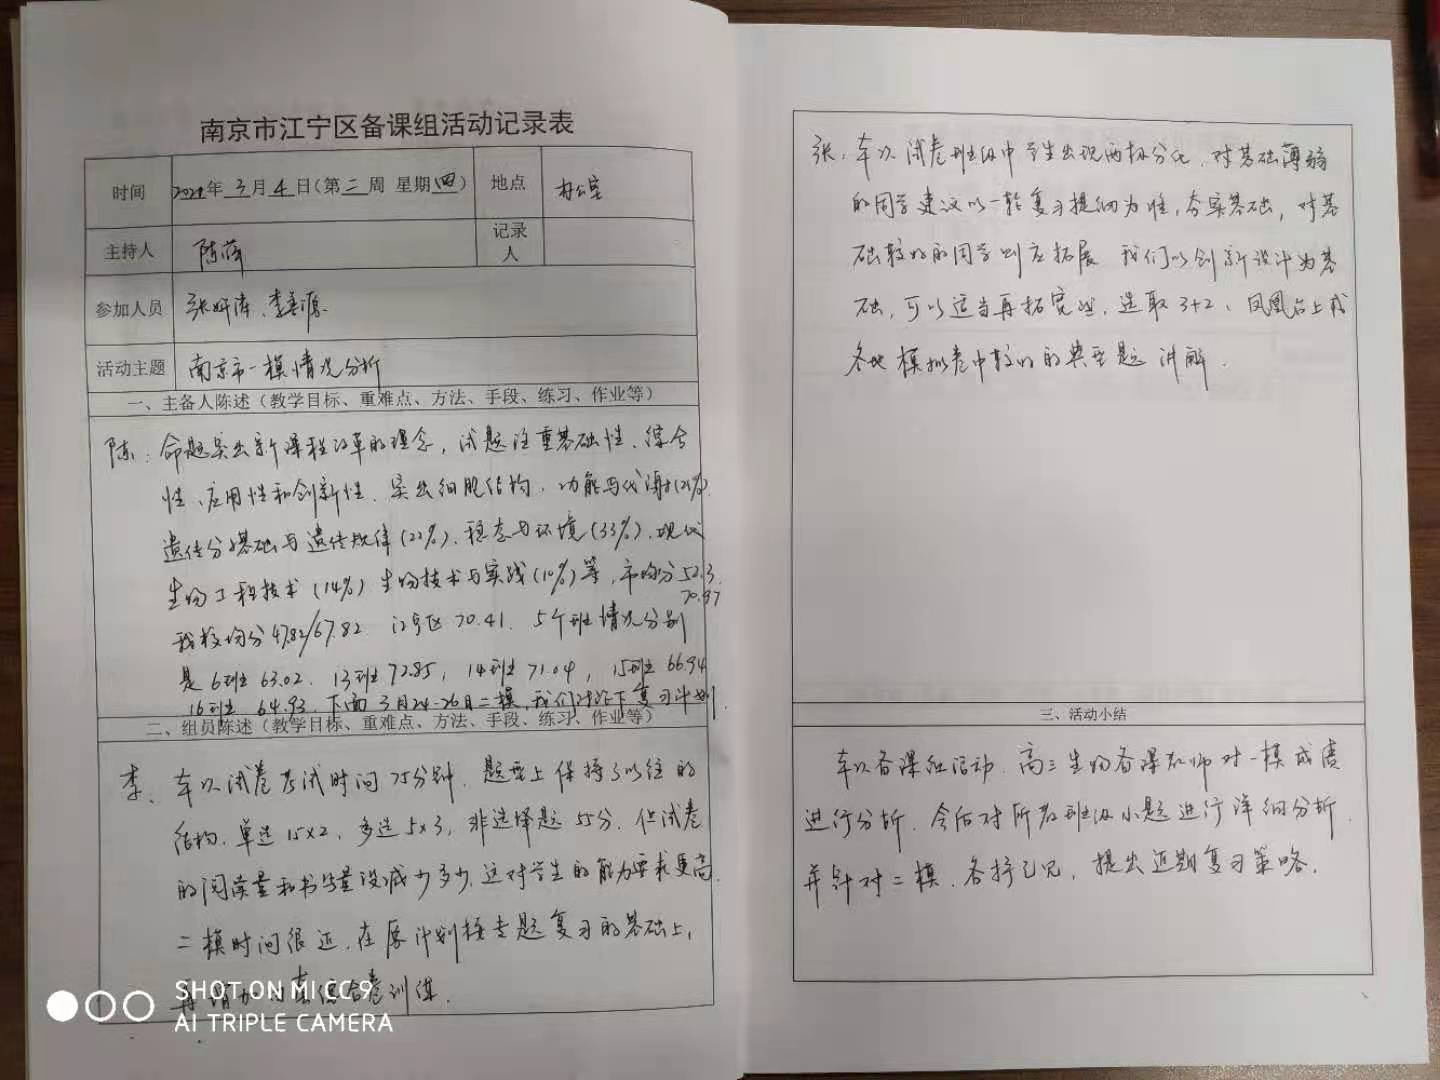 南京市江宁区备课组活动记录表
时间 2021年 3月 4日(第二周 星期四) 地点 办公室
主持人 陈萍 记录人
参加人员 张 李
活动主题 南京市一模情况分析
一、主备人陈述（教学目标、重难点、方法、手段、练习、作业等）
陈：命题突出新课程改革的理念，试题注重基础性、综合
性、应用性和创新性、突出细胞结构、功能与代谢
遗传分子基础与遗传规律(22%)、稳态与环境(33%)、现代
生物工程技术(14%) 生物技术与实践(10%)等，市均分52.3
70.97
我校均分47.82/67.82 江宁区 70.41. 5个班情况分别
是 6班 63.02. 13班 72.85, 14班 71.04, 15班 66.94
16班 64.93. 下面 3月24-26日二模，我们讨论下复习计划
二、组员陈述（教学目标、重难点、方法、手段、练习、作业等）
李、本次试卷考试时间75分钟，题型上保持了以往的
结构，单选15×2，多选5×3，非选择题55分，但试卷
的阅读量和书写量没减少多少，这对学生的能力要求更高
二模时间很近，在原计划按专题复习的基础上，
再增加 综合卷训练.
SHOT ON MI CC9
AI TRIPLE CAMERA
张、本次试卷班级中学生出现两极分化，对基础薄弱
的同学建议以一轮复习提纲为准，夯实基础，对基
础较好的同学则应拓展 我们以创新设计为基
础，可以适当再拓宽些，选取3+2、凤凰台上或
各地模拟卷中较好的典型题讲解.
三、活动小结
本次备课组活动，高三生物备课教师对一模成绩
进行分析，今后对所教班级小题进行详细分析，
并针对二模，各抒己见，提出近期复习策略.